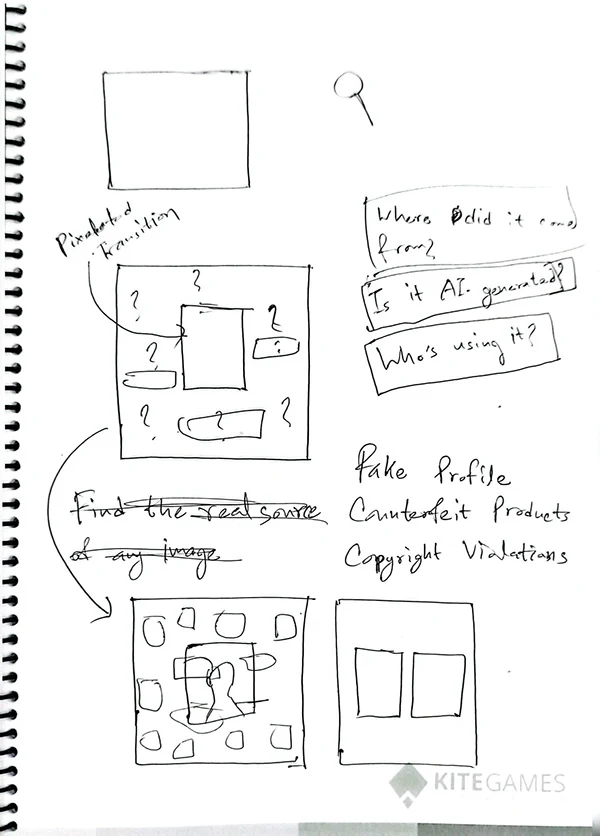 Pixelated
Transition
Where did it come
from?
Is it AI generated?
Who's using it?
?
?
?
?
?
?
?
?
Find the real source
of any image
Fake Profile
Counterfeit Products
Copyright Violations
KITEGAMES